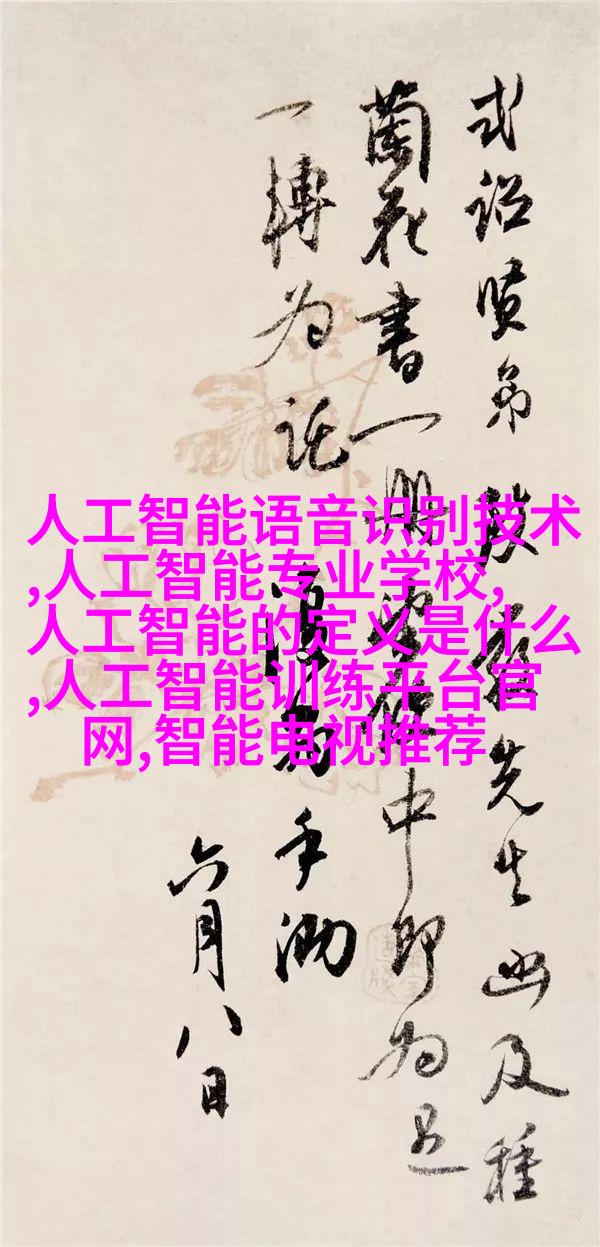 式詔贤弟 發 先生函及種
蘭花書一冊 中即为足
一轉为託
手泐
六月八日
人工智能语音识别技术
,人工智能专业学校,
人工智能的定义是什么
,人工智能训练平台官
网,智能电视推荐